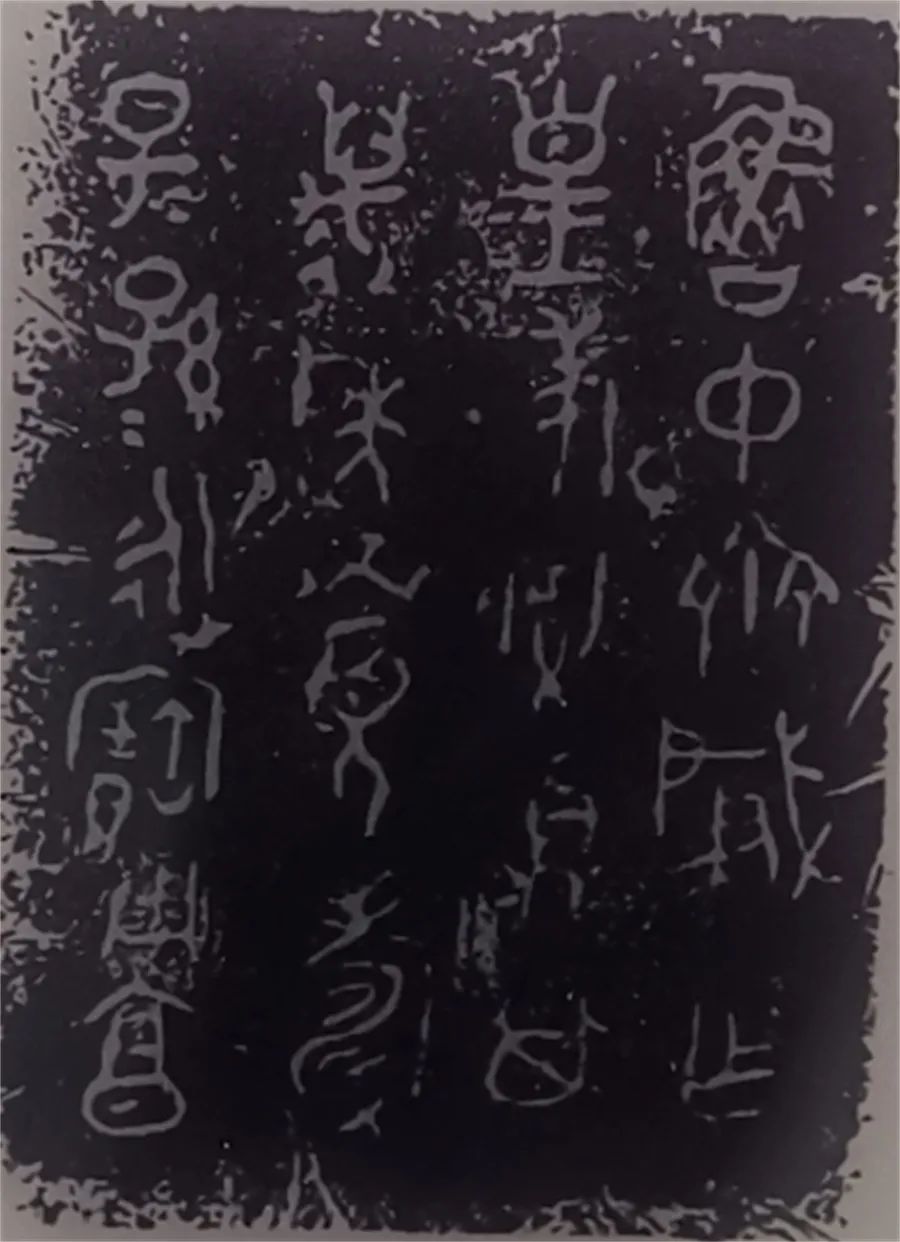 魯中齊肈乍
皇考𩰫鼎其
萬年眉壽
子=孫=永寶用享